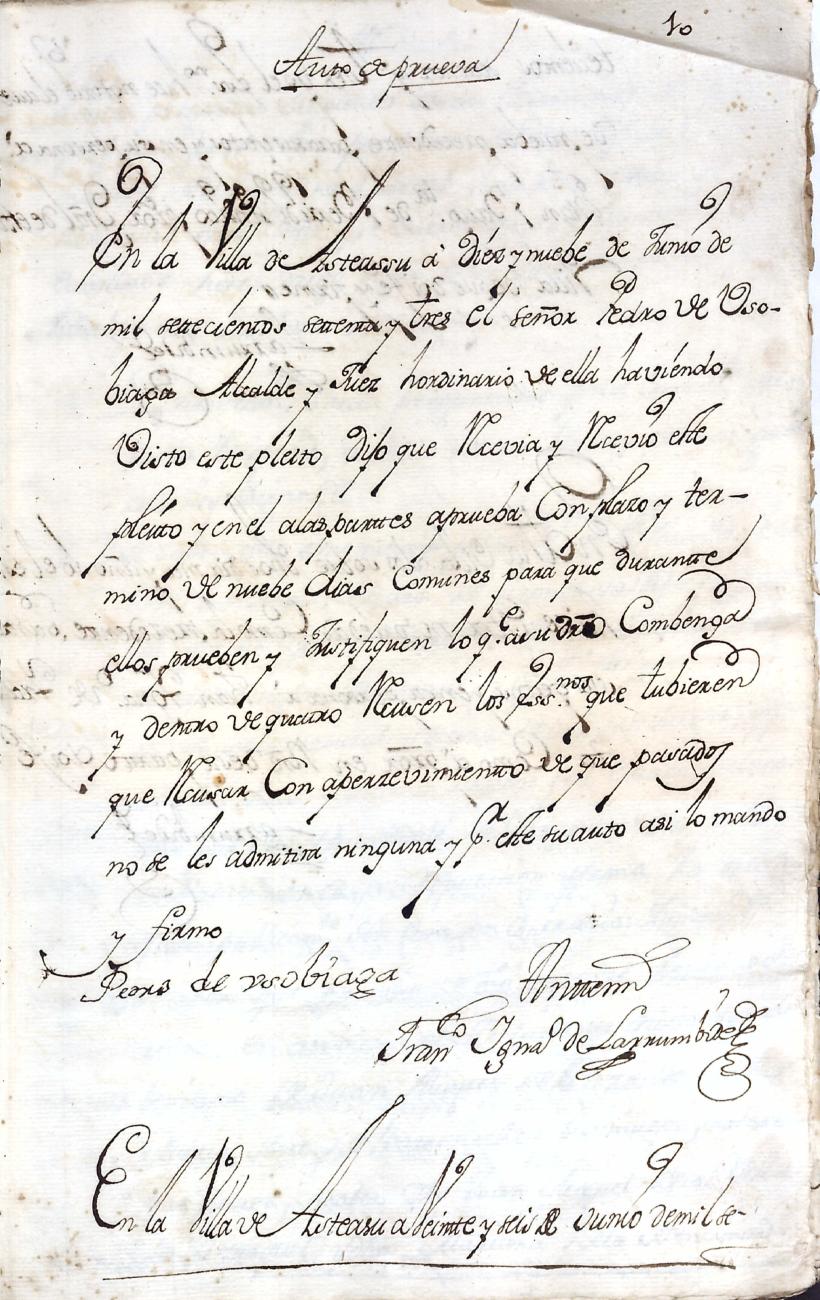 10
Auto de prueva
En la Villa de Asteassu a diez y nuebe de Junio de
mil settecientos settenta y tres el señor Pedro de Vso-
biaga Alcalde y Juez hordinario de ella haviendo
Visto este pleito Dijo que Rcevia y Rcevio este
pleito y en el a las parttes a prueba Con plazo y ter-
mino de nuebe dias Comunes para que durantte
ellos prueben y Justifiquen lo q.e a su dro Combenga
y dentro de quatro Rcusen los Essnos que tubieren
que Rcusar Con apercevimientto de que pasados
no se les admitira ninguna y p.r este su auto asi lo mando
y firmo
Pedro de vsobiaga
Anttemi
Fran.co Ygna.o de Larrumbide
En la Villa de Asteasu a Veintte y seis de Junio de mil se-